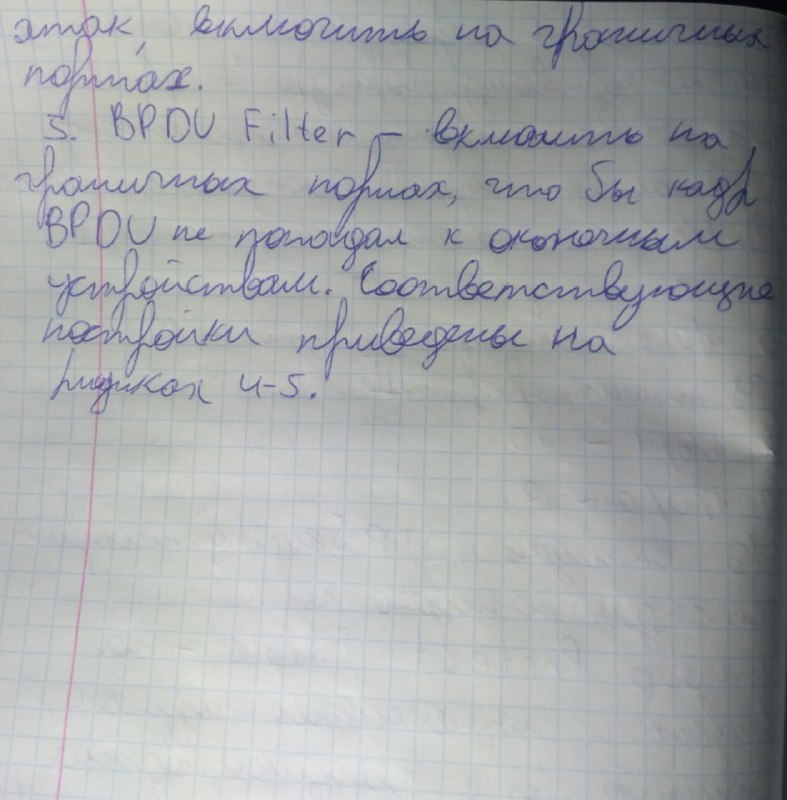 этак, включить на граничных
портах.
5. BPDU Filter – включить на
граничных портах, что бы кадр
BPDU не попадал к оконочным
устройствам. Соответствующие
настройки приведены на
рисунках 4-5.